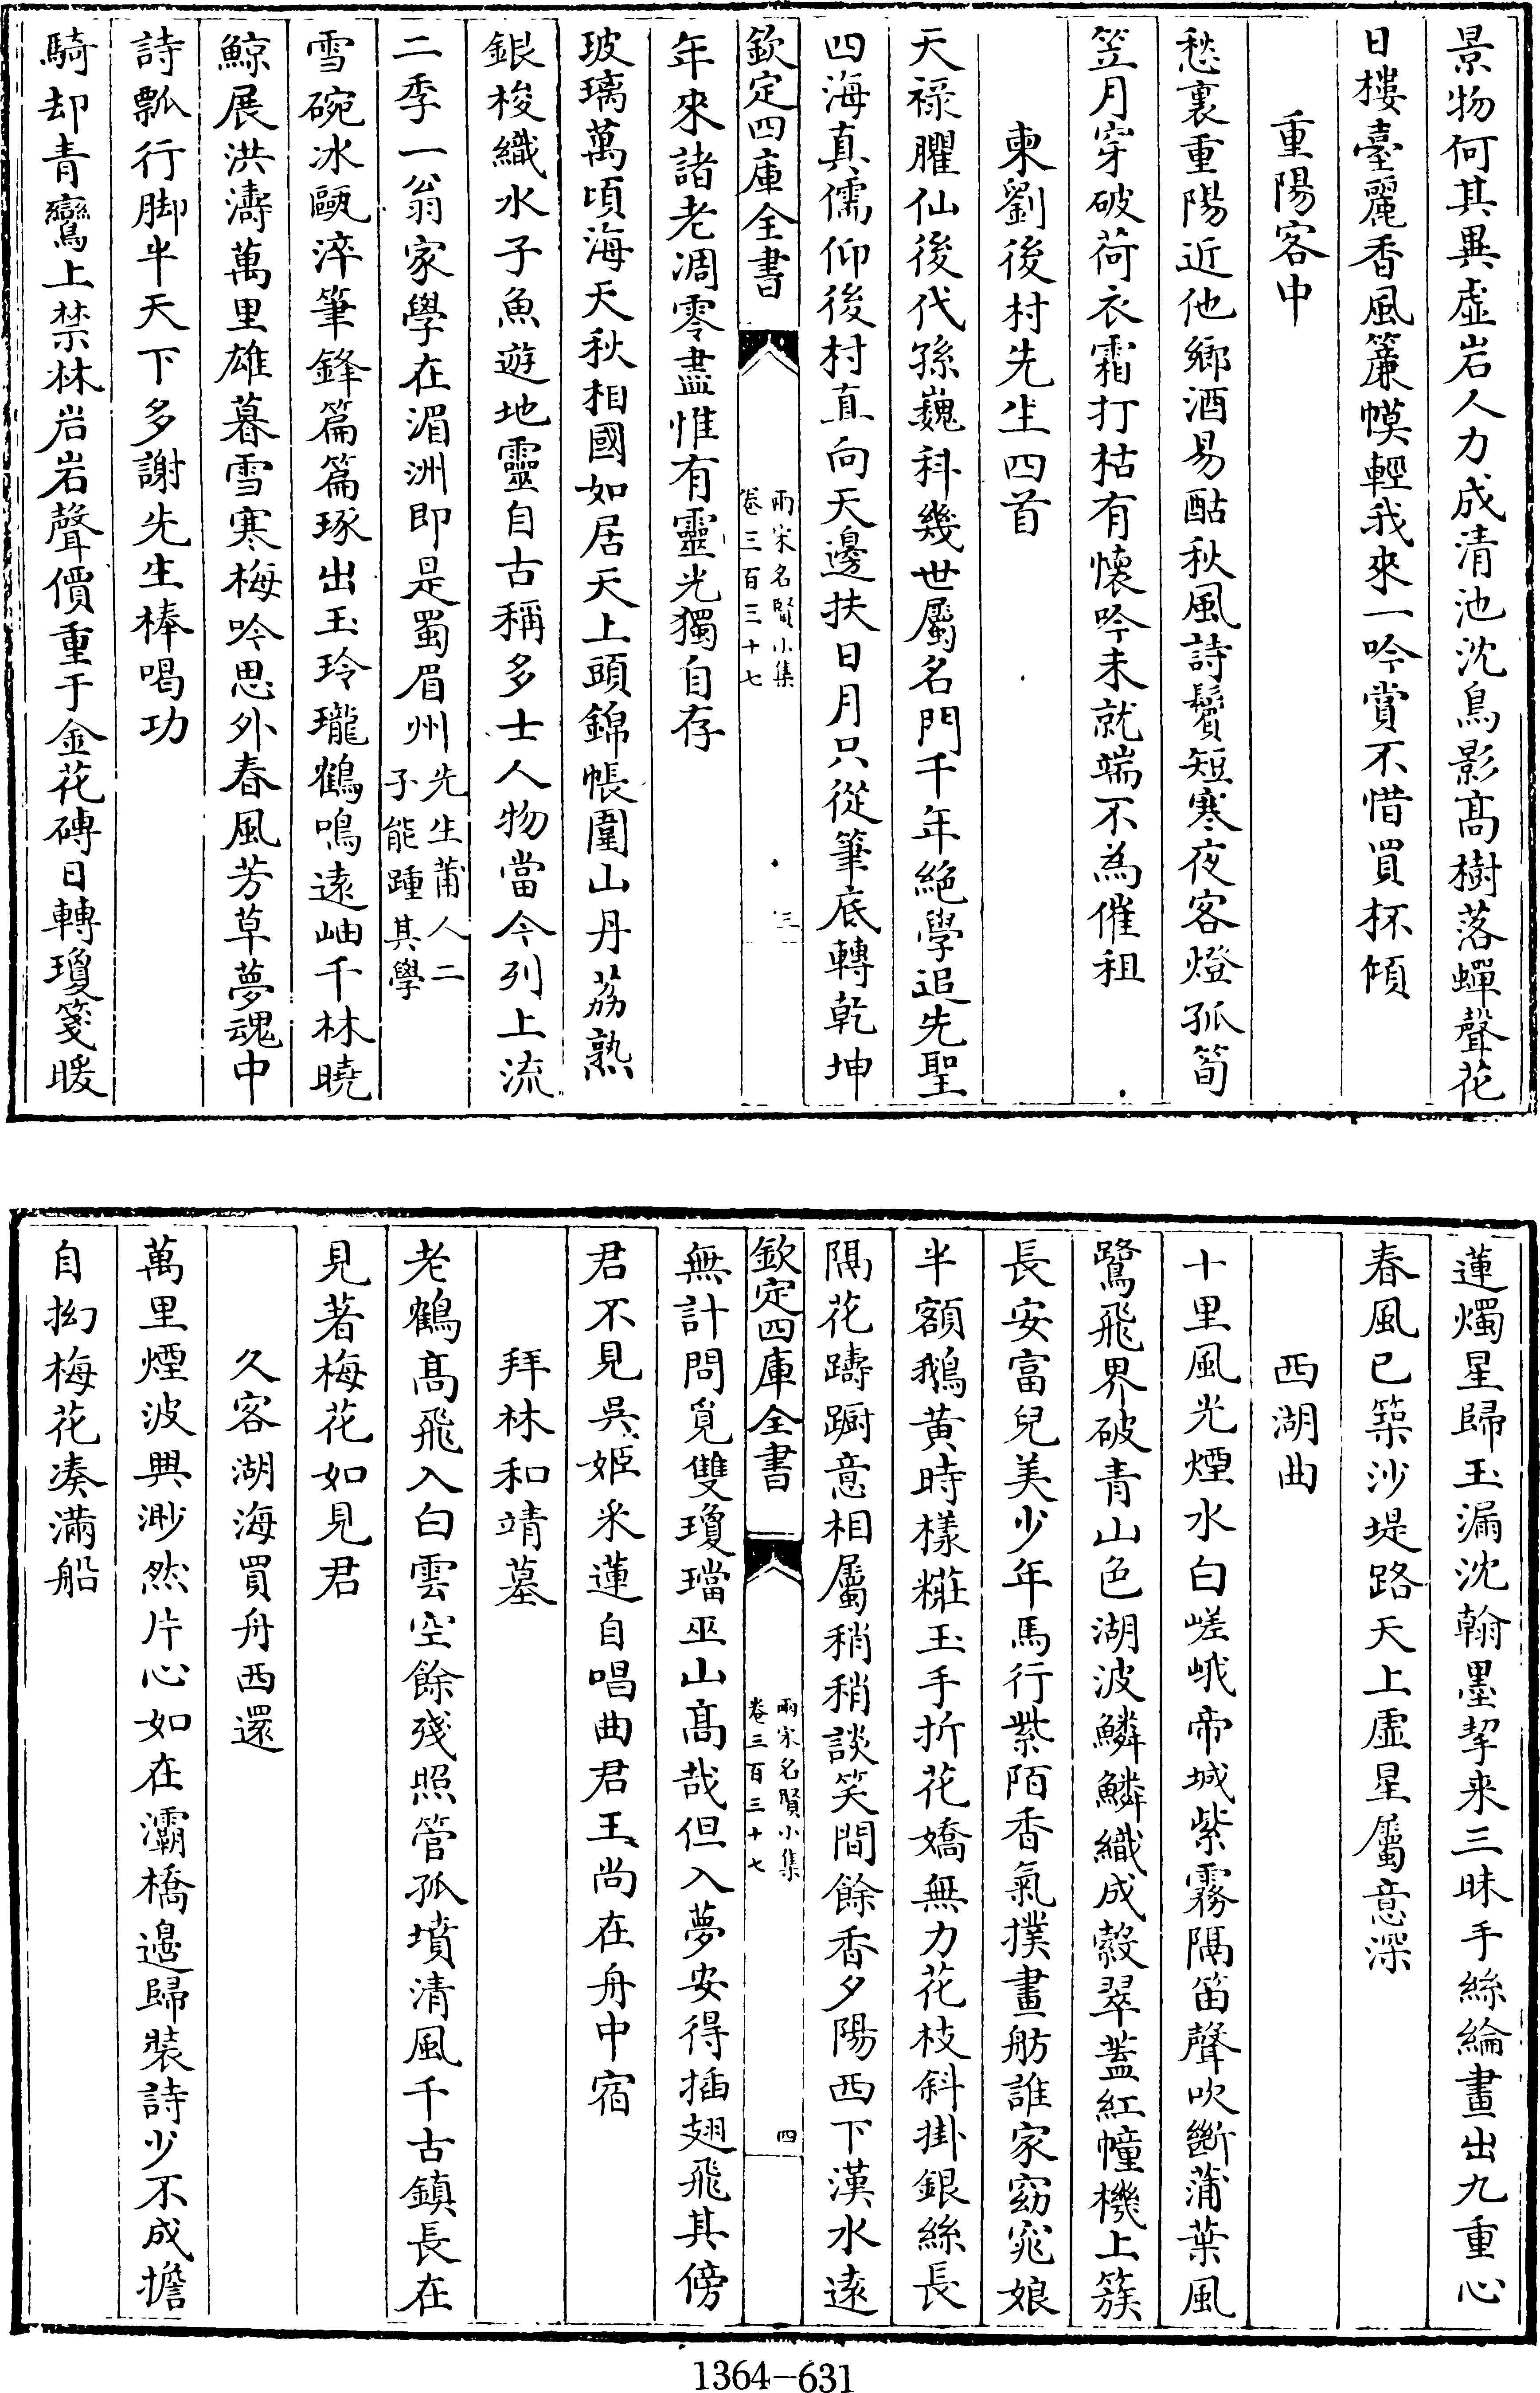 景物何其異虛岩人力成清池沈鳥影髙樹落蟬聲花
日樓臺麗香風簾幙輕我來一吟賞不惜買杯傾
重陽客中
愁裏重陽近他鄉酒易酤秋風詩鬢短寒夜客燈孤筍
笠月穿破荷衣霜打枯有懷吟未就端不為催租
柬劉後村先生四首
天祿臞仙後代孫巍科幾世屬名門千年絶學追先聖
四海真儒仰後村直向天邊扶日月只從筆底轉乾坤
欽定四庫全書
兩宋名賢小集
卷三百三十七
三
年來諸老凋零盡惟有靈光獨自存
玻璃萬頃海天秋相國如居天上頭錦帳圍山丹荔熟
銀梭織水子魚遊地靈自古稱多士人物當今列上流
二季一翁家學在湄洲即是蜀眉州先生莆人二子能踵其學
雪碗冰甌淬筆鋒篇篇琢出玉玲瓏鶴鳴遠岫千林曉
鯨展洪濤萬里雄暮雪寒梅吟思外春風芳草夢魂中
詩瓢行脚半天下多謝先生棒喝功
騎却青鸞上禁林岩岩聲價重于金花磚日轉瓊箋暖
蓮燭星歸玉漏沈翰墨挈来三昧手絲綸畫出九重心
春風已築沙堤路天上虛星屬意深
西湖曲
十里風光煙水白嵯峨帝城紫霧隔笛聲吹斷蒲葉風
鷺飛界破青山色湖波鱗鱗織成縠翠蓋紅幢機上簇
長安富兒美少年馬行紫陌香氣撲畫舫誰家窈窕娘
半額鵝黃時樣粧玉手折花嬌無力花枝斜掛銀絲長
隔花躊躕意相屬稍稍談笑間餘香夕陽西下漢水遠
欽定四庫全書
兩宋名賢小集
卷三百三十七
四
無計問覓雙瓊璫巫山髙哉但入夢安得插翅飛其傍
君不見吳姬采蓮自唱曲君王尚在舟中宿
拜林和靖墓
老鶴髙飛入白雲空餘殘照管孤墳清風千古鎮長在
見著梅花如見君
久客湖海買舟西還
萬里煙波興渺然片心如在灞橋邉歸裝詩少不成擔
自拗梅花凑滿船
1364-631